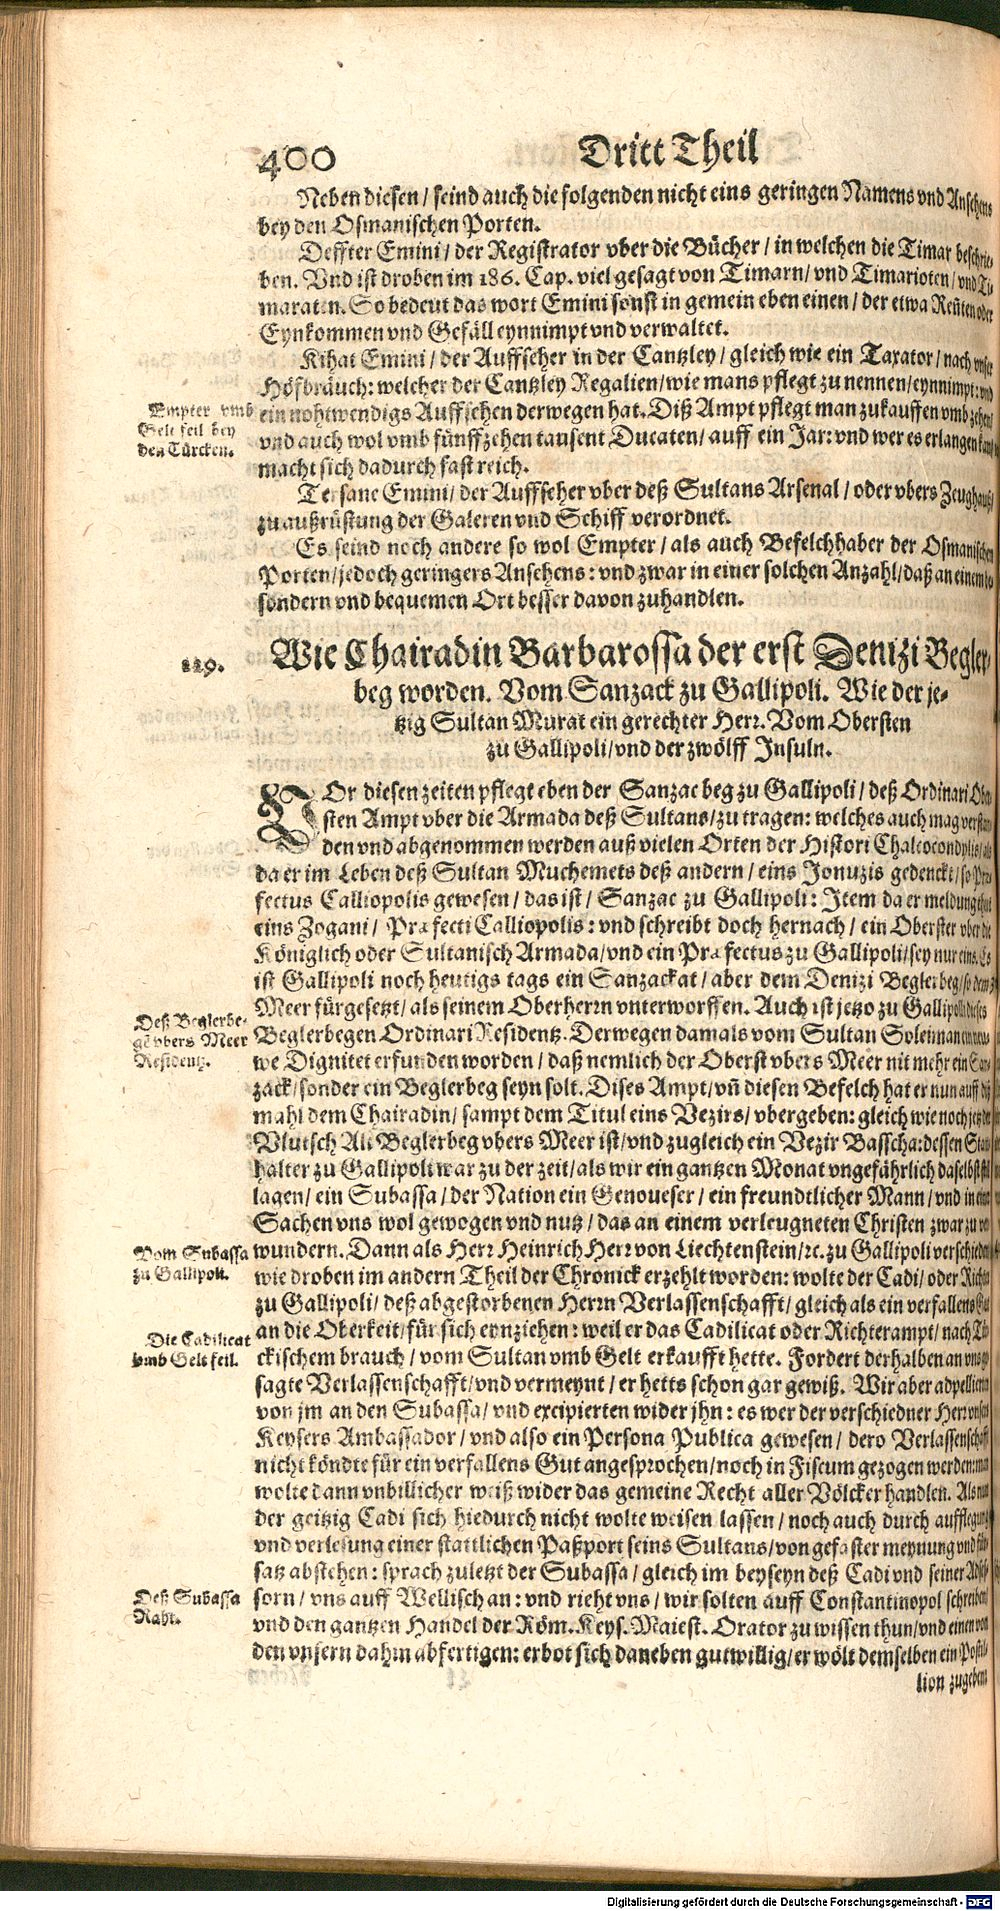 400
Dritt Theil
Neben diesen / seind auch die folgenden nicht eins geringen Namens vnd Ansehens
bey den Osmanischen Porten.
Deffter Emini / der Registrator vber die Bücher / in welchen die Timar beschrie-
ben. Vnd ist droben im 186. Cap. viel gesagt von Timarn / vnd Timarioten / vnd Ti-
maraten. So bedeut das wort Emini sonst in gemein eben einen / der etwa Renten oder
Eynkommen vnd Gefäll eynnimpt vnd verwaltet.
Kihat Emini / der Auffseher in der Cantzley / gleich wie ein Taxator / nach vnser
Höfbräuch: welcher der Cantzley Regalien / wie mans pflegt zu nennen / eynnimpt: vnd
ein nohtwendigs Auffsehen derwegen hat. Diß Ampt pflegt man zukauffen vmb zehen /
vnd auch wol vmb fünffzehen tausent Ducaten / auff ein Jar: vnd wer es erlangen kan /
macht sich dadurch fast reich.
Empter vmb
Gelt feil bey
den Türcken.
Tersane Emini / der Auffseher vber deß Sultans Arsenal / oder vbers Zeughauß /
zu außrüstung der Galeren vnd Schiff verordnet.
Es seind noch andere so wol Empter / als auch Befelchhaber der Osmanischen
Porten / jedoch geringers Ansehens: vnd zwar in einer solchen Anzahl / daß an einem be-
sondern vnd bequemen Ort besser davon zuhandlen.
119.
Wie Chairadin Barbarossa der erst Denizi Begler-
beg worden. Vom Sanzack zu Gallipoli. Wie der je-
tzig Sultan Murat ein gerechter Herr. Vom Obersten
zu Gallipoli / vnd der zwölff Insuln.
VOr diesen zeiten pflegt eben der Sanzac beg zu Gallipoli / deß Ordinari Ober-
sten Ampt vber die Armada deß Sultans / zu tragen: welches auch mag verstan-
den vnd abgenommen werden auß vielen Orten der Histori Chalcocondylis / als
da er im Leben deß Sultan Muchemets deß andern / eins Jonuzis gedenckt / so Præ-
fectus Calliopolis gewesen / das ist / Sanzac zu Gallipoli: Item da er meldung thut
eins Zogani / Præfecti Calliopolis: vnd schreibt doch hernach / ein Oberster vber die
Königlich oder Sultanisch Armada / vnd ein Præfectus zu Gallipoli / sey nur eins. Es
ist Gallipoli noch heutigs tags ein Sanzackat / aber dem Denizi Beglerbeg / so dem
Meer fürgesetzt / als seinem Oberherrn vnterworffen. Auch ist jetzo zu Gallipoli dieses
Beglerbegen Ordinari Residentz. Derwegen damals vom Sultan Soleiman ein neu-
we Dignitet erfunden worden / daß nemlich der Oberst vbers Meer nit mehr ein San-
zack / sonder ein Beglerbeg seyn solt. Dises Ampt / vñ diesen Befelch hat er nun auff diß
mahl dem Chairadin / sampt dem Titul eins Vezirs / vbergeben: gleich wie noch jetz der
Vlutsch Ali Beglerbeg vbers Meer ist / vnd zugleich ein Vezir Basscha: dessen Stat-
halter zu Gallipoli war zu der zeit / als wir ein gantzen Monat vngefährlich daselbst still
lagen / ein Subassa / der Nation ein Genoueser / ein freundtlicher Mann / vnd in
Sachen vns wol gewogen vnd nutz / das an einem verleugneten Christen zwar zu ver-
wundern. Dann als Herr Heinrich Herr von Liechtenstein / rc. zu Gallipoli verschieden
wie droben im andern Theil der Chronick erzehlt worden: wolte der Cadi / oder Richter
zu Gallipoli / deß abgestorbenen Herrn Verlassenschafft / gleich als ein verfallens Gut
an die Oberkeit / für sich eynziehen: weil er das Cadilicat oder Richterampt / nach Tür-
ckischem brauch / vom Sultan vmb Gelt erkaufft hette. Fordert derhalben an vns ge-
sagte Verlassenschafft / vnd vermeynt / er hetts schon gar gewiß. Wir aber adpellierten
von jm an den Subassa / vnd excipierten wider jhn: es wer der verschiedner Herr vnsers
Keysers Ambassador / vnd also ein Persona Publica gewesen / dero Verlassenschafft
nicht köndte für ein verfallens Gut angesprochen / noch in Fiscum gezogen werden: man
wolte dann vnbillicher weiß wider das gemeine Recht aller Völcker handlen. Als nun
der geitzig Cadi sich hiedurch nicht wolte weisen lassen / noch auch durch aufflegung
vnd verlesung einer stattlichen Paßport seins Sultans / von gefaster meynung vnd für-
satz abstehen: sprach zuletzt der Subassa / gleich im beyseyn deß Cadi vnd seiner
sorn / vns auff Wellisch an: vnd rieht vns / wir solten auff Constantinopol schreiben /
vnd den gantzen Handel der Röm. Keys. Maiest. Orator zu wissen thun / vnd einen von
den vnsern dahin abfertigen: erbot sich daneben gutwillig / er wölt demselben ein Postil-
lion zugeben:
Deß Beglerbe-
gē vbers Meer
Residentz.
Vom Subassa
zu Gallipoli.
Die Cadilicat
vmb Gelt feil.
Deß Subassa
Raht.
Digitalisierung gefördert durch die Deutsche Forschungsgemeinschaft - DFG